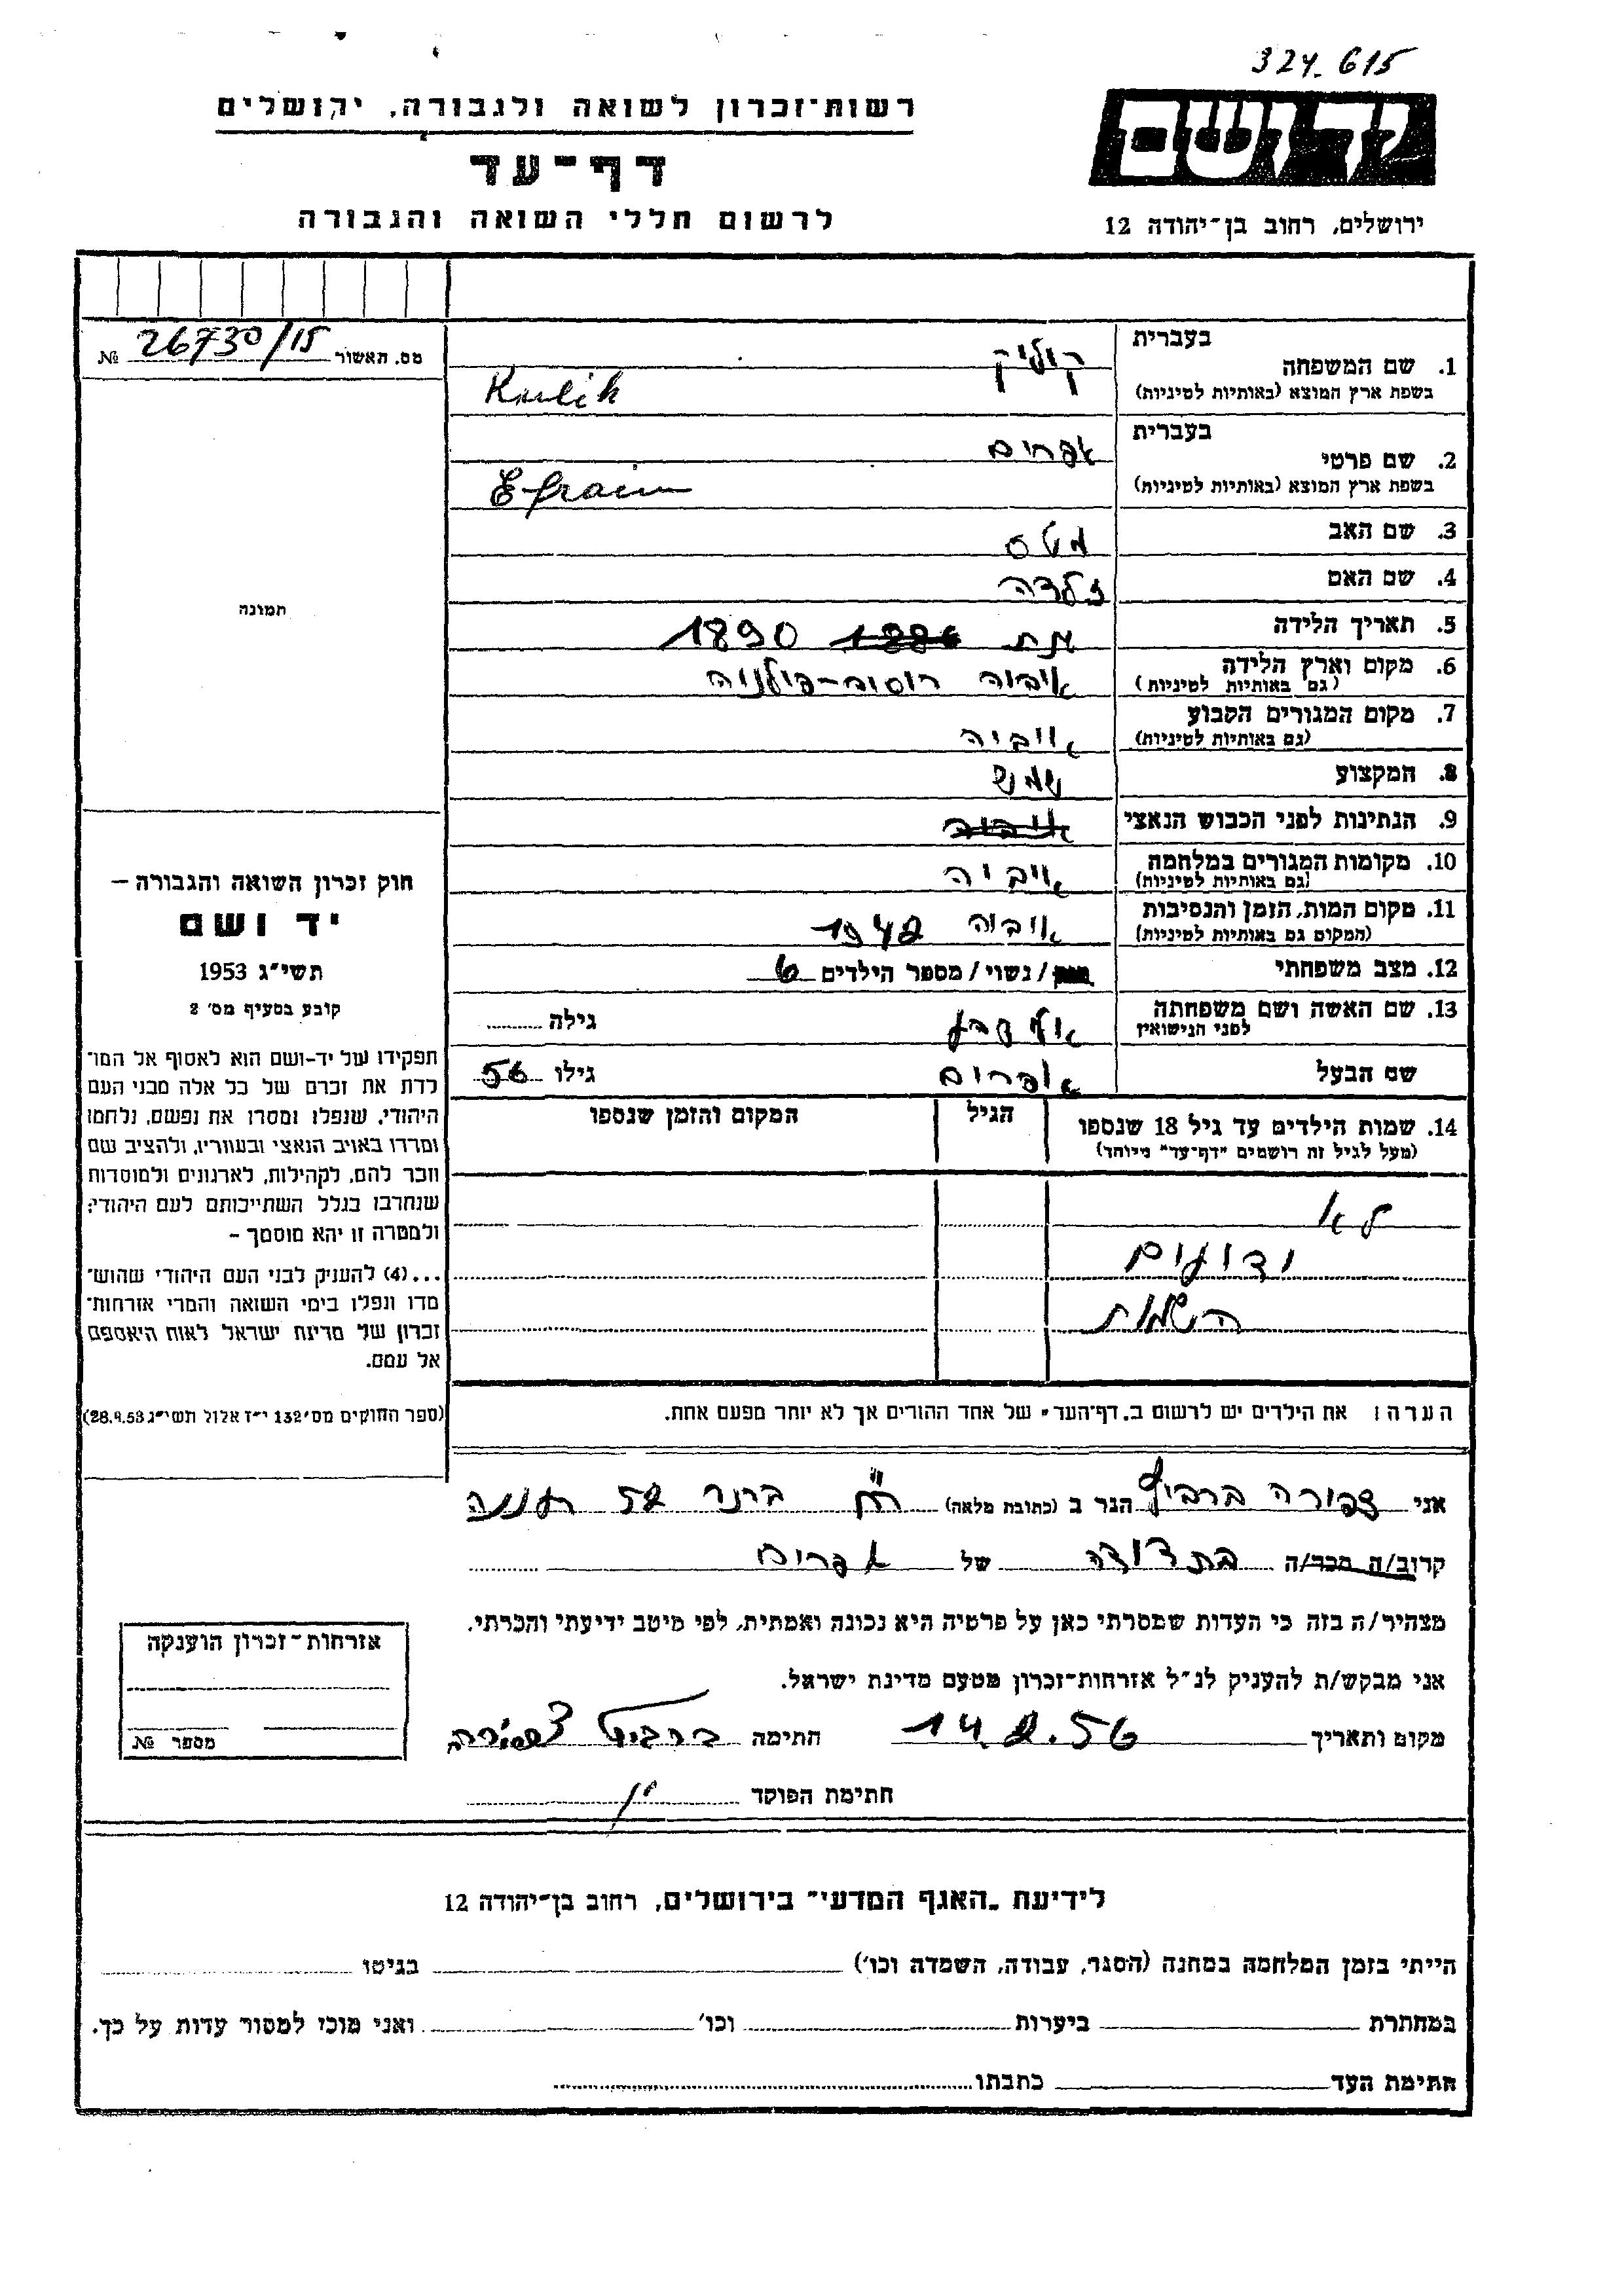 324.615
רשות־זכרון לשואה ולגבורה, ירושלים
דף־עד
לרשום חללי השואה והגבורה
יד ושם
ירושלים, רחוב בן־יהודה 12
מס. האשור 26730/15 №
תמונה
חוק זכרון השואה והגבורה –
יד ושם
תשי״ג 1953
קובע בסעיף מס׳ 2
תפקידו של יד-ושם הוא לאסוף אל המו־
לדת את זכרם של כל אלה מבני העם
היהודי, שנפלו ומסרו את נפשם, נלחמו
ומרדו באויב הנאצי ובעוזריו, ולהציב שם
וזכר להם, לקהילות, לארגונים ולמוסדות
שנחרבו בגלל השתייכותם לעם היהודי;
ולמטרה זו יהא מוסמך –
...(4) להעניק לבני העם היהודי שהוש־
מדו ונפלו בימי השואה והמרי אזרחות־
זכרון של מדינת ישראל לאות היאספם
אל עמם.
(ספר החוקים מס׳ 132 י״ז אלול תשי״ג 28.8.53)
בעברית
1. שם המשפחה קוליק
בשפת ארץ המוצא (באותיות לטיניות) Kulik
בעברית
2. שם פרטי אפרים
בשפת ארץ המוצא (באותיות לטיניות) Efraim
3. שם האב מטס
4. שם האם זלדה
5. תאריך הלידה שנת 1886 1890
6. מקום וארץ הלידה אוביה רוסיה-פולניה
(גם באותיות לטיניות)
7. מקום המגורים הקבוע אוביה
(גם באותיות לטיניות)
8. המקצוע שמש
9. הנתינות לפני הכבוש הנאצי אוביה
10. מקומות המגורים במלחמה אוביה
(גם באותיות לטיניות)
11. מקום המות, הזמן והנסיבות אוביה 1942
(המקום גם באותיות לטיניות)
12. מצב משפחתי / נשוי / מספר הילדים 6
13. שם האשה ושם משפחתה גילה
לפני הנישואין
שם הבעל אפרים גילו 56
14. שמות הילדים עד גיל 18 שנספו הגיל המקום והזמן שנספו
(מעל לגיל זה רושמים ״דף־עד״ מיוחד)
לא
ידועים
השמות
הערה: את הילדים יש לרשום ב„דף־העד״ של אחד ההורים אך לא יותר מפעם אחת.
אני צפורה ברביץ הגר ב (כתובת מלאה) רח׳ ברנר 52 רעננה
קרוב/ה מכר/ה בת דודה של אפרים
מצהיר/ה בזה כי העדות שמסרתי כאן על פרטיה היא נכונה ואמתית, לפי מיטב ידיעתי והכרתי.
אני מבקש/ת להעניק לנ״ל אזרחות־זכרון מטעם מדינת ישראל.
מקום ותאריך 14.2.56 חתימה ברביץ צפורה
חתימת הפוקד
אזרחות־זכרון הוענקה
מספר №
לידיעת „האגף המדעי״ בירושלים, רחוב בן־יהודה 12
הייתי בזמן המלחמה במחנה (הסגר, עבודה, השמדה וכו׳) בגיטו
במחתרת ביערות וכו׳ ואני מוכן למסור עדות על כך.
חתימת העד כתבתו